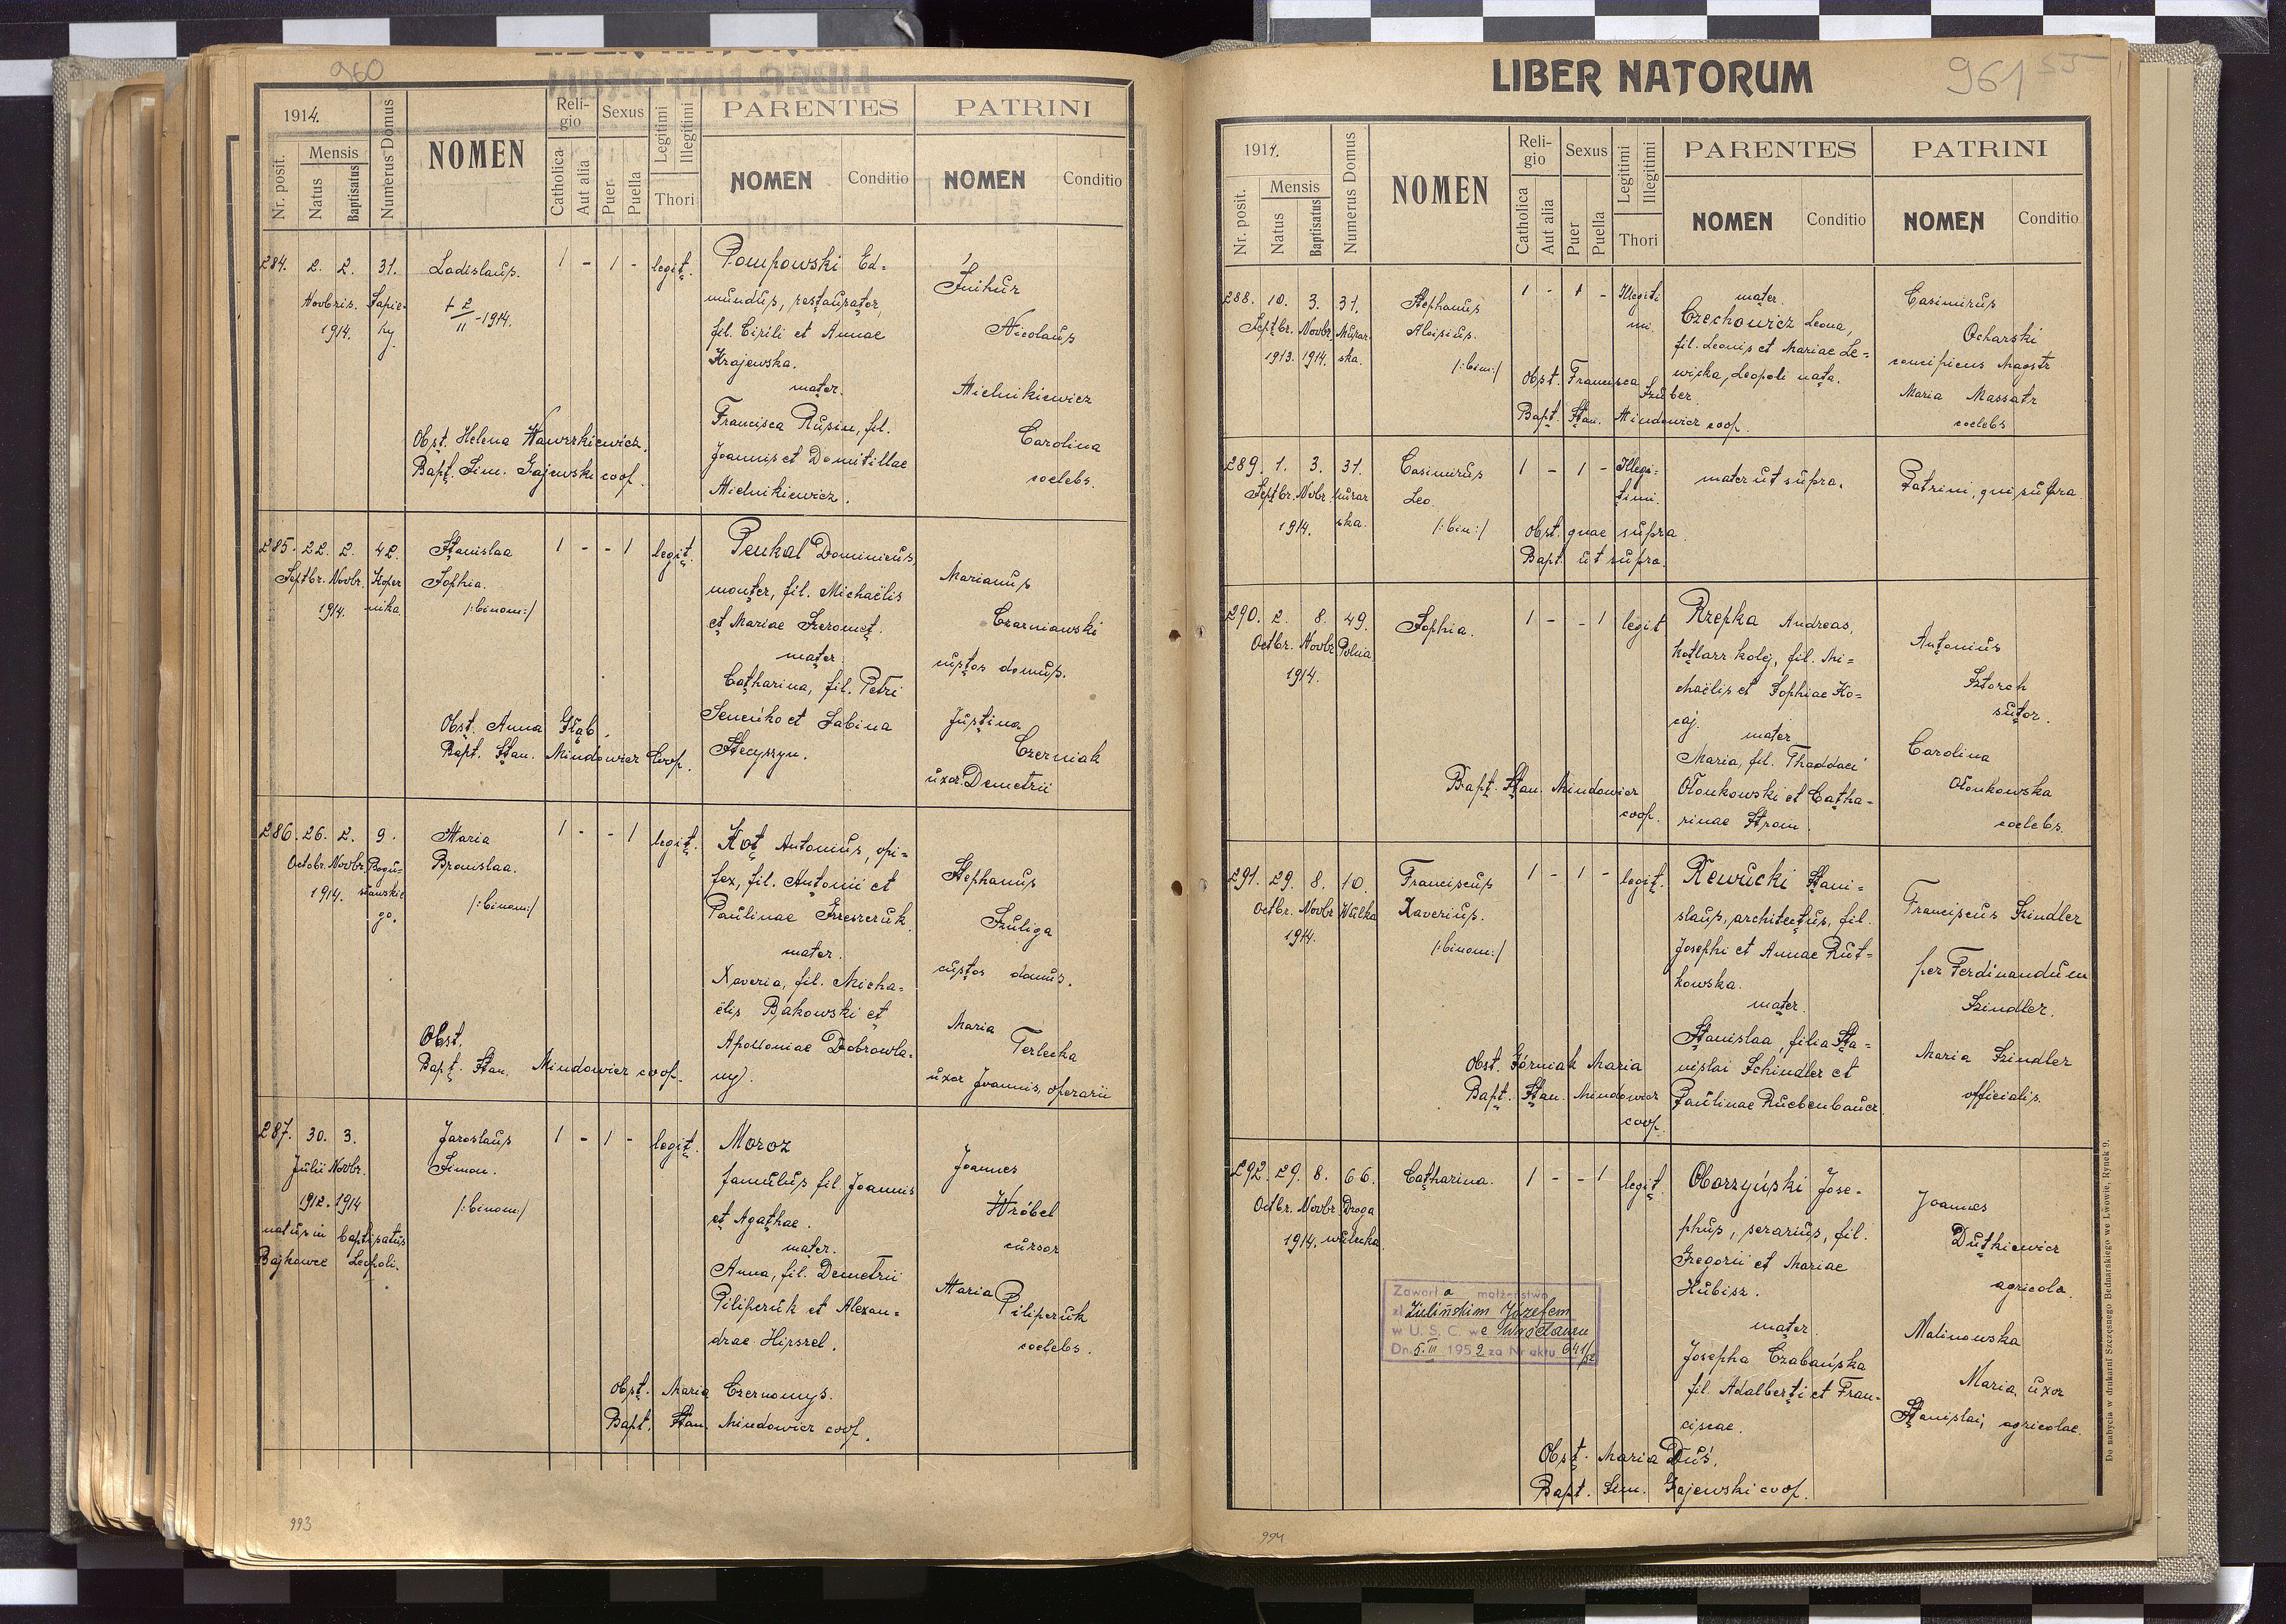 960
1914.
Nr. posit.
Mensis
Natus
Baptisatus
Numerus Domus
NOMEN
Reli-
gio
Catholica
Aut alia
Sexus
Puer
Puella
Legitimi
Illegitimi
Thori
PARENTES
NOMEN
Conditio
PATRINI
NOMEN
Conditio
284. 2. 2. 31.
Novbris. Sapie-
1914. hy.
Ladislaus.
+ 2/11 - 1914.
1 - 1 - legit.
Pompowski Ed-
mundus, restaurator,
fil. Cirili et Annae
Krajewska.
mater.
Francisca Rusin, fil.
Joannis et Domitillae
Mielnikiewicz.
Nicolaus
Mielnikiewicz
Carolina
coelebs.
Obst. Helena Wawrzkiewicz.
Bapt. Sim. Gajewski coop.
285. 22. 2. 42.
Septbr. Novbr. Koper
1914. nika.
Stanislaa
Sophia.
/:binom:/
1 - - 1 legit.
Penkal Dominicus,
monter, fil. Michaëlis
et Mariae Szeromet.
mater.
Catharina, fil. Petri
Senenko et Sabina
Stecyszyn.
Marianus
Czarniawski
custos domus.
Justina
Czerniak
uxor Demetrii
Obst. Anna Głąb.
Bapt. Stan. Mindowicz Coop.
286. 26. 2. 9.
Octobr. Novbr. Bogu-
1914. sławskie
go.
Maria
Bronislaa.
/:binom:/
1 - - 1 legit.
Kot Antonius, opi-
fex, fil. Antonii et
Paulinae
mater.
Xaveria, fil. Micha-
ëlis Bakowski et
Apolloniae Dobrowla-
ny).
Stephanus
Szuliga
custos domus.
Maria
Terlecka
uxor Joannis, operarii
Obst.
Bapt. Stan. Mindowicz coop.
287. 30. 3.
Julii Novbr.
1912. 1914
natus in baptisatus
Bajkowce Leopoli.
Jaroslaus
Simon.
/:binom:/
1 - 1 - legit.
Moroz
famulus fil. Joannis
et Agathae.
mater.
Anna, fil. Demetrii
Pilipczuk et Alexan-
drae Hirszel.
Joannes
Wróbel
cursor
Maria Pilipczuk
coelebs.
Obst. Maria Czernomys.
Bapt. Stan. Mindowicz coop.
993
LIBER NATORUM
961
55
1914.
Nr. posit.
Mensis
Natus
Baptisatus
Numerus Domus
NOMEN
Reli-
gio
Catholica
Aut alia
Sexus
Puer
Puella
Legitimi
Illegitimi
Thori
PARENTES
NOMEN
Conditio
PATRINI
NOMEN
Conditio
288. 10. 3. 31.
Septbr. Novbr. Murar
1913. 1914. ska.
Stephanus
Aloisius.
/:bin:/
1 - 1 - Illegiti
mi.
mater.
Czechowicz Leona,
fil. Leonis et Mariae Le-
wicka, Leopoli nata.
Casimirus
Ocharski
concipicus Magstr
Maria Massatr
coelebs
Obst. Francisca
Szuber
Bapt. Stan. Mindowicz coop.
289. 1. 3. 31.
Septbr. Novbr. Murar
1914. ska.
Casimirus
Leo.
/:bin:/
1 - 1 - Illegi-
timi.
mater ut supra.
Patrini, qui supra
Obst. quae supra.
Bapt. ut supra.
290. 2. 8. 49.
Octbr. Novbr Polna
1914.
Sophia.
1 - - 1 legit
Rzepka Andreas,
kotlarz kolej, fil. Mi-
chaëlis et Sophiae Ko-
caj.
mater
Maria, fil. Thaddaei
Ołonkowski et Catha-
rinae Strom.
Antonius
Sztorch
sutor.
Carolina
Ołonkowska
coelebs.
Bapt. Stan. Mindowicz
coop.
291. 29. 8. 10.
Octbr. Novbr Wulka
1914.
Franciscus
Xaverius.
/:binom:/
1 - 1 - legit.
Rewucki Stani-
slaus, architectus, fil.
Josephi et Annae Rut-
kowska.
mater.
Stanislaa, filia Sta-
nislai Schindler et
Paulinae Ruebenbauer.
Franciscus Szindler
per Ferdinandum
Szindler.
Maria Szindler
officialis.
Obst. Górniak Maria
Bapt. Stan. Mindowicz
coop.
292. 29. 8. 66.
Octbr. Novbr Droga
1914. wulecka.
Catharina.
1 - - 1 legit.
Oborzyński Jose-
phus, serarius, fil.
Gregorii et Mariae
Hubisz.
mater.
Josepha Czabańska
fil. Adalberti et Fran-
ciscae.
Joannes
Dutkiewicz
agricola.
Malinowska
Maria, uxor
Stanislai, agricolae.
Zawarł a małżeństwo
z Żulińskim Józefem
w U. S. C. we Wrocławiu
Dn. 5.III 1952 za Nr aktu 641/52
Obst. Maria Duś.
Bapt. Sim. Gajewski coop.
Do nabycia w drukarni Szczęsnego Bednarskiego we Lwowie, Rynek 9.
994